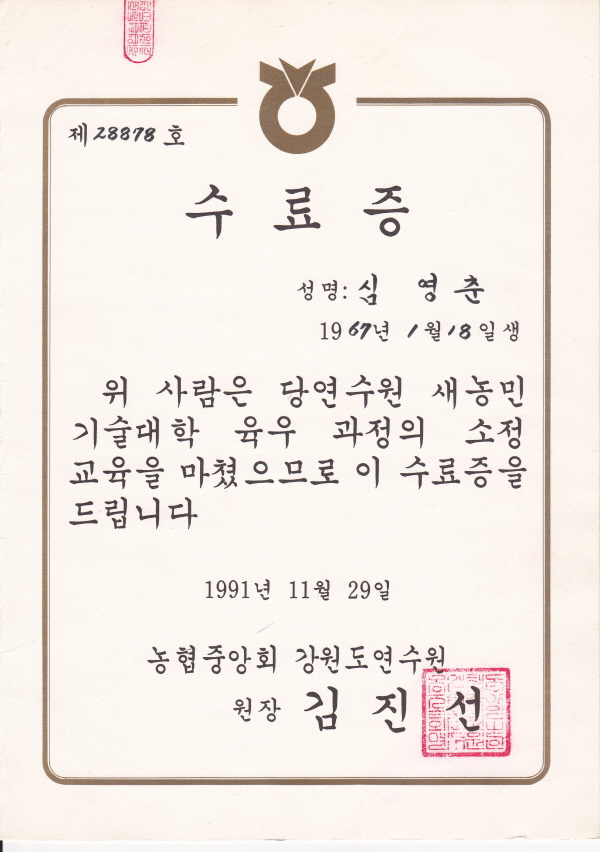 제 28878 호
수 료 증
성명: 심 영 춘
1967년 1월 18일생
위 사람은 당연수원 새농민
기술대학 육우 과정의 소정
교육을 마쳤으므로 이 수료증을
드립니다
1991년 11월 29일
농협중앙회 강원도연수원
원장 김 진 선